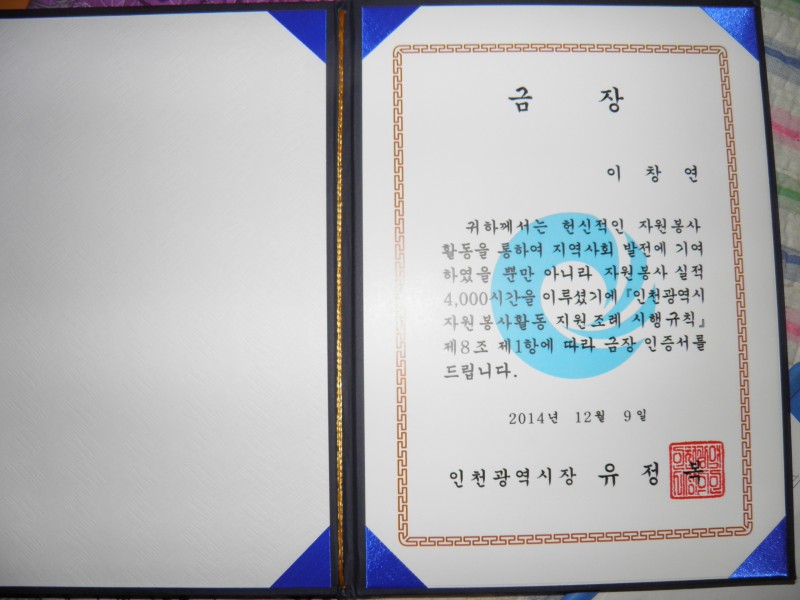 금 장
이 창 연
귀하께서는 헌신적인 자원봉사
활동을 통하여 지역사회 발전에 기여
하였을 뿐만 아니라 자원봉사 실적
4,000시간을 이루셨기에 『인천광역시
자원봉사활동 지원조례 시행규칙』
제8조 제1항에 따라 금장 인증서를
드립니다.
2014년 12월 9일
인천광역시장 유 정 복